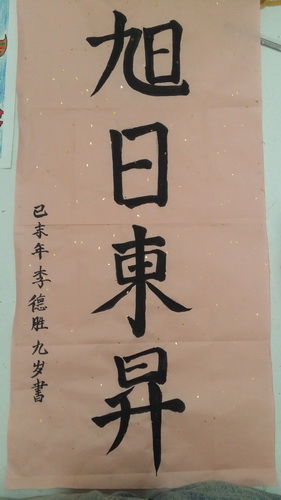 旭日東昇
已未年李德胜九岁書